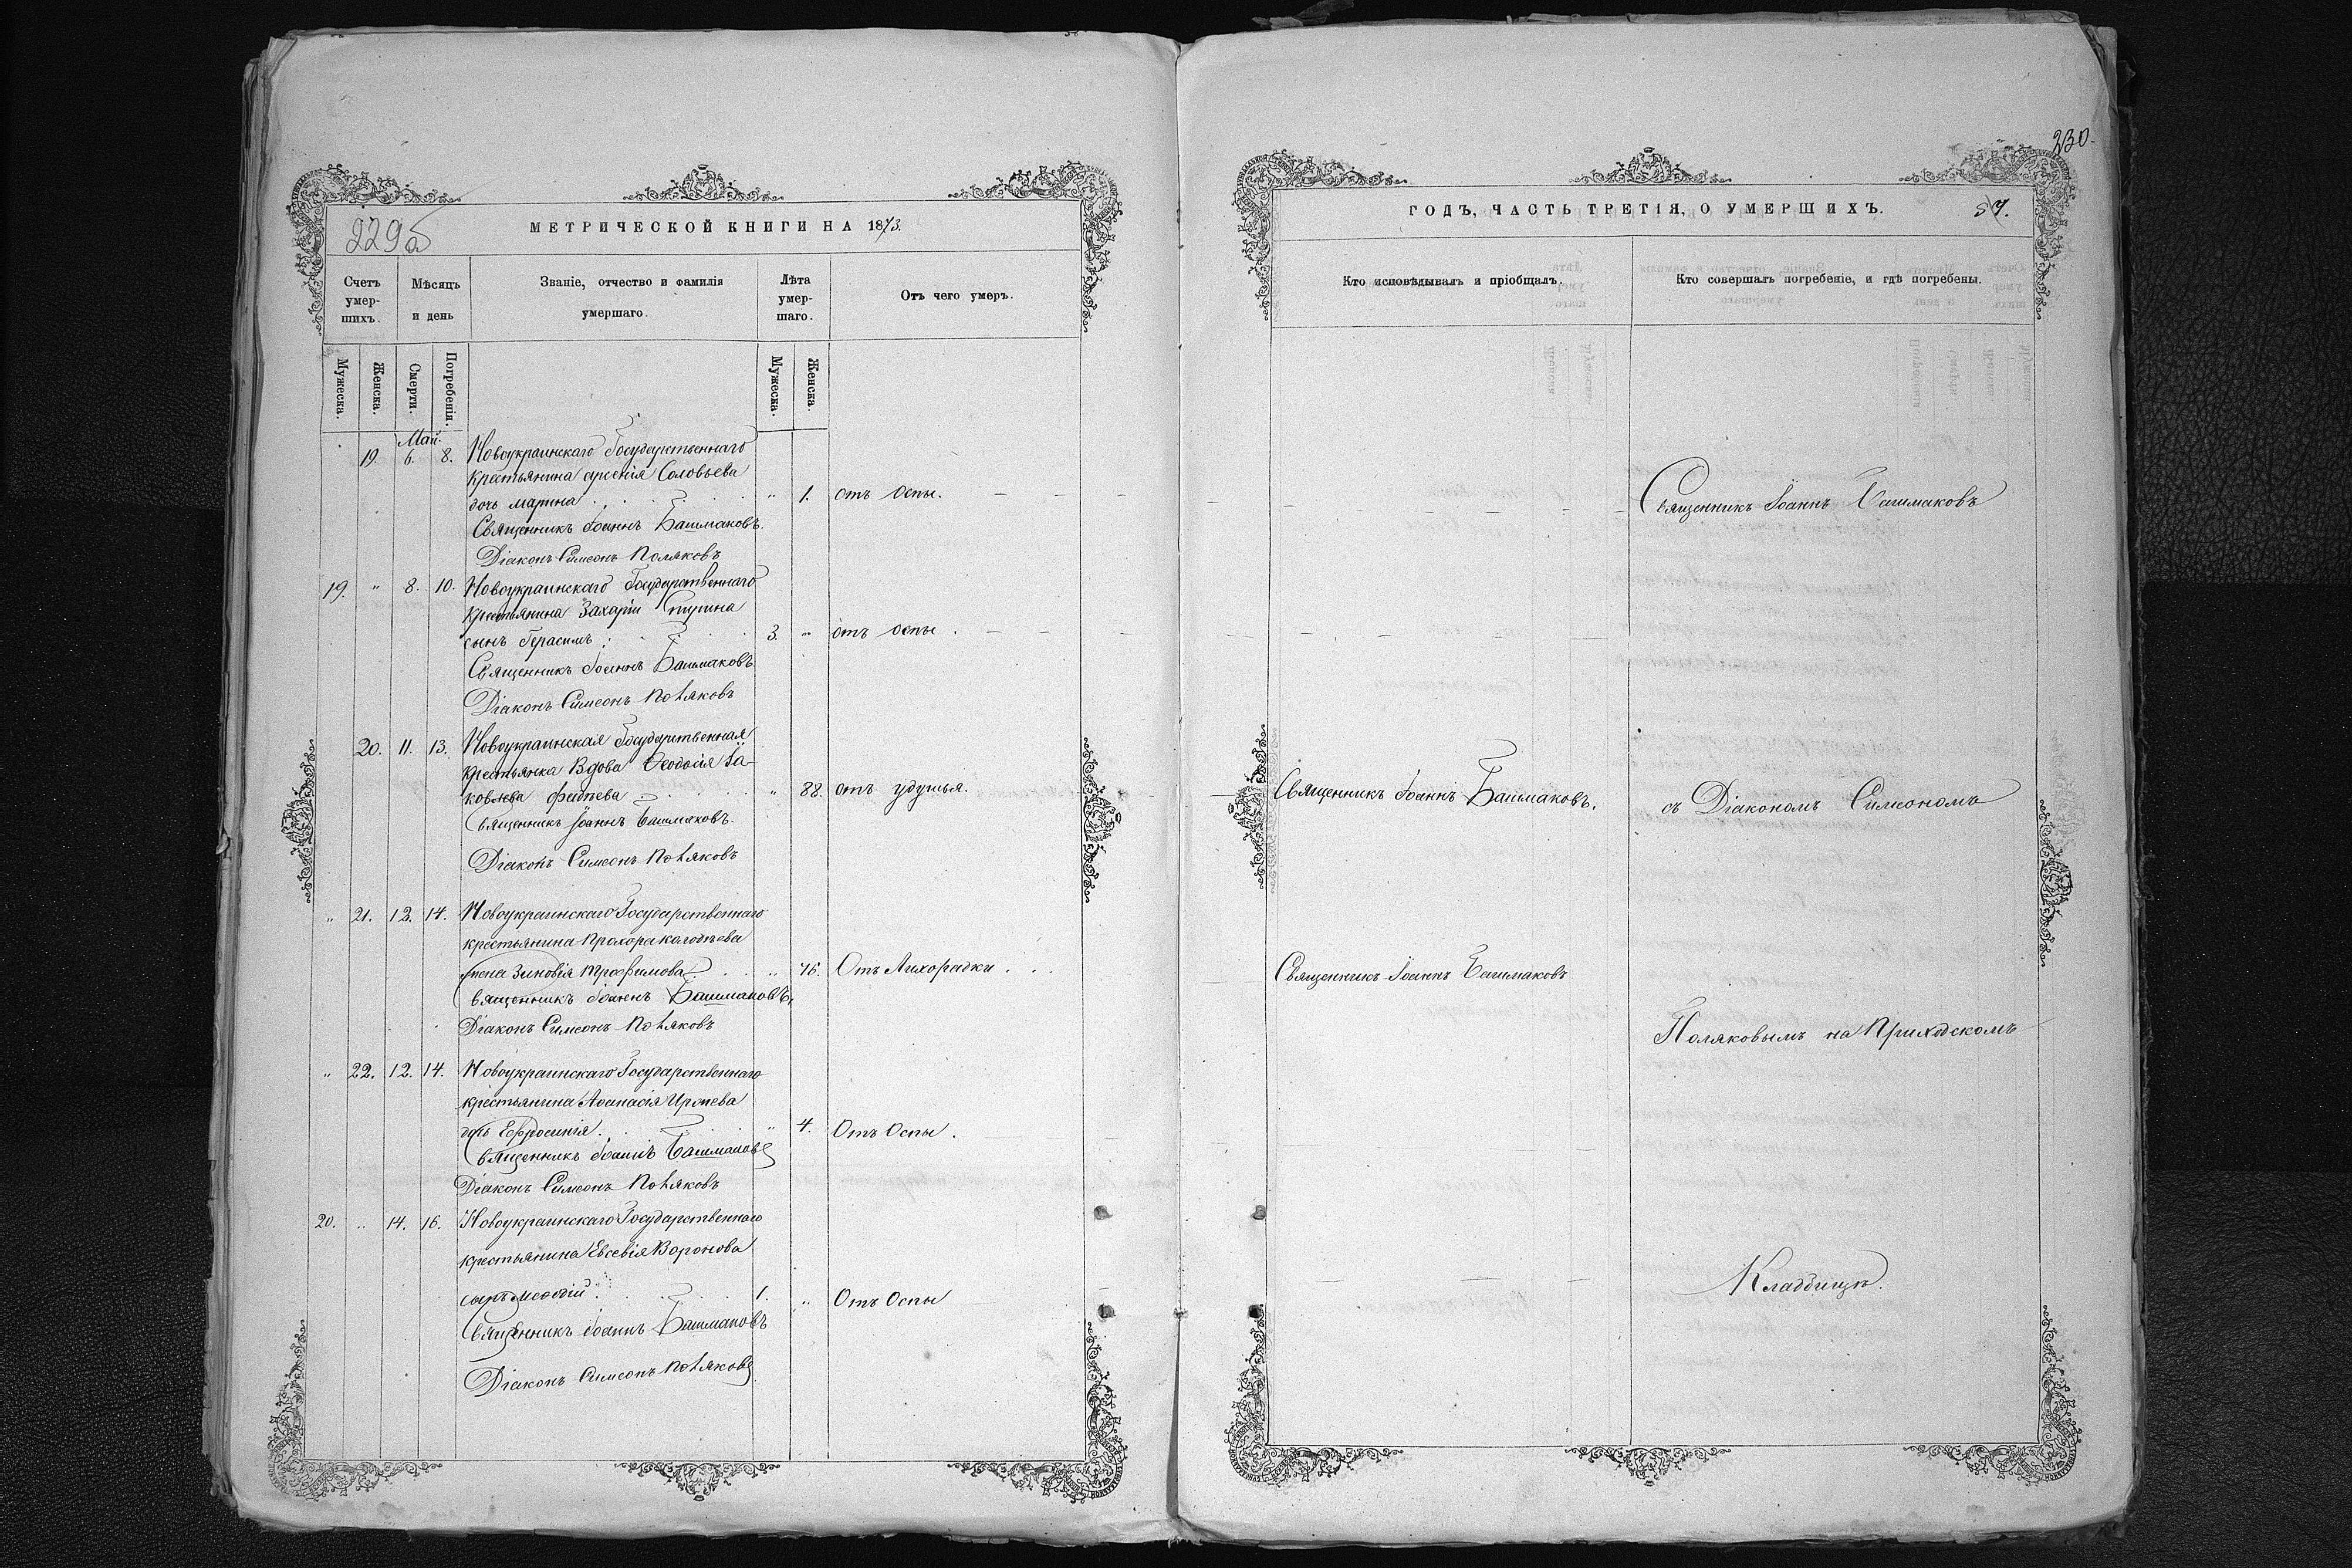 229 б
МЕТРИЧЕСКОЙ КНИГИ НА 1873.
Счетъ умер-шихъ.
Мѣсяцъ и день
Званіе, отчество и фамилія умершаго.
Лѣта умер-шаго.
Отъ чего умеръ.
Мужеска.
Женска.
Смерти.
Погребенія.
Мужеска.
Женска.
Май.
19. 6. 8. Новоукраинскаго Государственнаго
крестьянина Арсенія Соловьева
дочь Марина . . . . . " 1. отъ оспы.
Священникъ Іоаннъ Башмаковъ.
Діаконъ Симеонъ Поляковъ
19. " 8. 10. Новоукраинскаго Государственнаго
крестьянина Захарія
сынъ Герасимъ . . . 3. " отъ оспы.
Священникъ Іоаннъ Башмаковъ
Діаконъ Симеонъ Поляковъ
20. 11. 13. Новоукраинская Государственная
крестьянка Вдова Ѳеодосія Іа-
ковлева . . . " 88. отъ удушья.
Священникъ Іоаннъ Башмаковъ.
Діаконъ Симеонъ Поляковъ
" 21. 12. 14. Новоукраинскаго Государственнаго
крестьянина Прохора
жена Зиновія Трофимова . . " 46. Отъ Лихорадки . . .
Священникъ Іоаннъ Башмаковъ,
Діаконъ Симеонъ Поляковъ
" 22. 12. 14. Новоукраинскаго Государственнаго
крестьянина Аѳанасія
дочь Ефросинія . . . " 4. Отъ Оспы.
Священникъ Іоаннъ Башмаковъ
Діаконъ Симеонъ Поляковъ
20. " 14. 16. Новоукраинскаго Государственнаго
крестьянина Евсевія Воронова
сынъ . . . 1. " Отъ Оспы
Священникъ Іоаннъ Башмаковъ
Діаконъ Симеонъ Поляковъ
230.
ГОДЪ, ЧАСТЬ ТРЕТІЯ, О УМЕРШИХЪ.
57.
Кто исповѣдывалъ и пріобщалъ.
Кто совершалъ погребеніе, и гдѣ погребены.
Священникъ Іоаннъ Башмаковъ
Священникъ Іоаннъ Башмаковъ.
съ Діакономъ Симеономъ
Священникъ Іоаннъ Башмаковъ
Поляковымъ на Приходскомъ
Кладбищѣ.